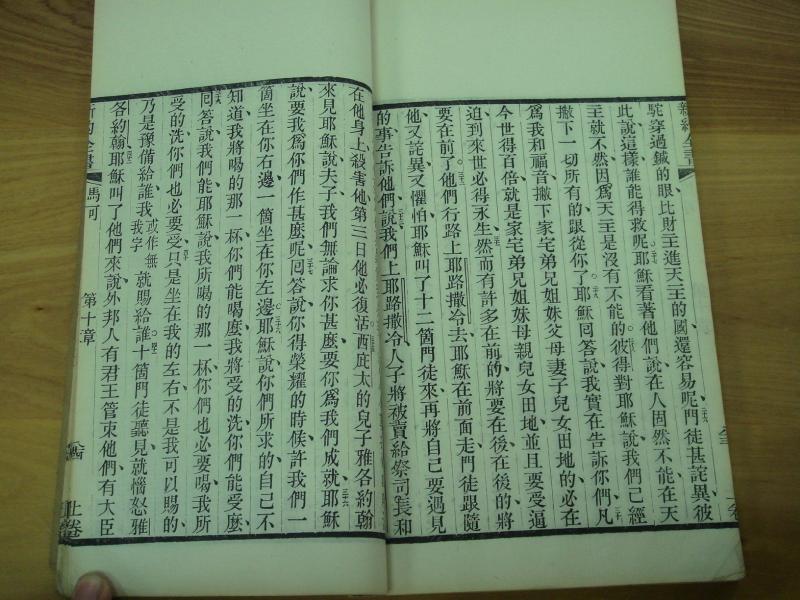 新約全書
駝穿過鍼的眼、比財主進天主的國、還容易呢、門徒甚詫異、彼
此說、這樣誰能得救呢、耶穌看著他們說、在人固然不能、在天
主就不然、因爲天主是沒有不能的、彼得對耶穌說、我們已經
撇下一切所有的、跟從你了、耶穌回答說、我實在告訴你們、凡
爲我和福音、撇下家宅弟兄姐妹父母妻子兒女田地的、必在
今世得百倍、就是家宅弟兄姐妹母親兒女田地、並且要受逼
迫、到來世必得永生、然而有許多在前的、將要在後、在後的、將
要在前了、他們行路上耶路撒冷去、耶穌在前面走、門徒跟隨
他、又詫異、又懼怕、耶穌叫了十二箇門徒來、再將自己要遇見
的事、告訴他們說、我們上耶路撒冷、人子將被賣給祭司長和
在他身上、殺害他、第三日他必復活、西庇太的兒子雅各約翰
來見耶穌說、夫子、我們無論求你甚麼、要你爲我們成就、耶穌
說、要我爲你們作甚麼呢、回答說、你得榮耀的時候、許我們一
箇坐在你右邊、一箇坐在你左邊、耶穌說、你們所求的、自己不
知道、我將喝的那一杯、你們能喝麼、我將受的洗、你們能受麼、
回答說、我們能、耶穌說、我所喝的那一杯、你們也必要喝、我所
受的洗、你們也必要受、只是坐在我的左右、不是我可以賜的、
乃是豫備給誰、我 或作無我字 就賜給誰、十箇門徒聽見、就惱怒雅
各約翰、耶穌叫了他們來、說、外邦人有君王管束他們、有大臣
新約全書 馬可 第十章
上卷